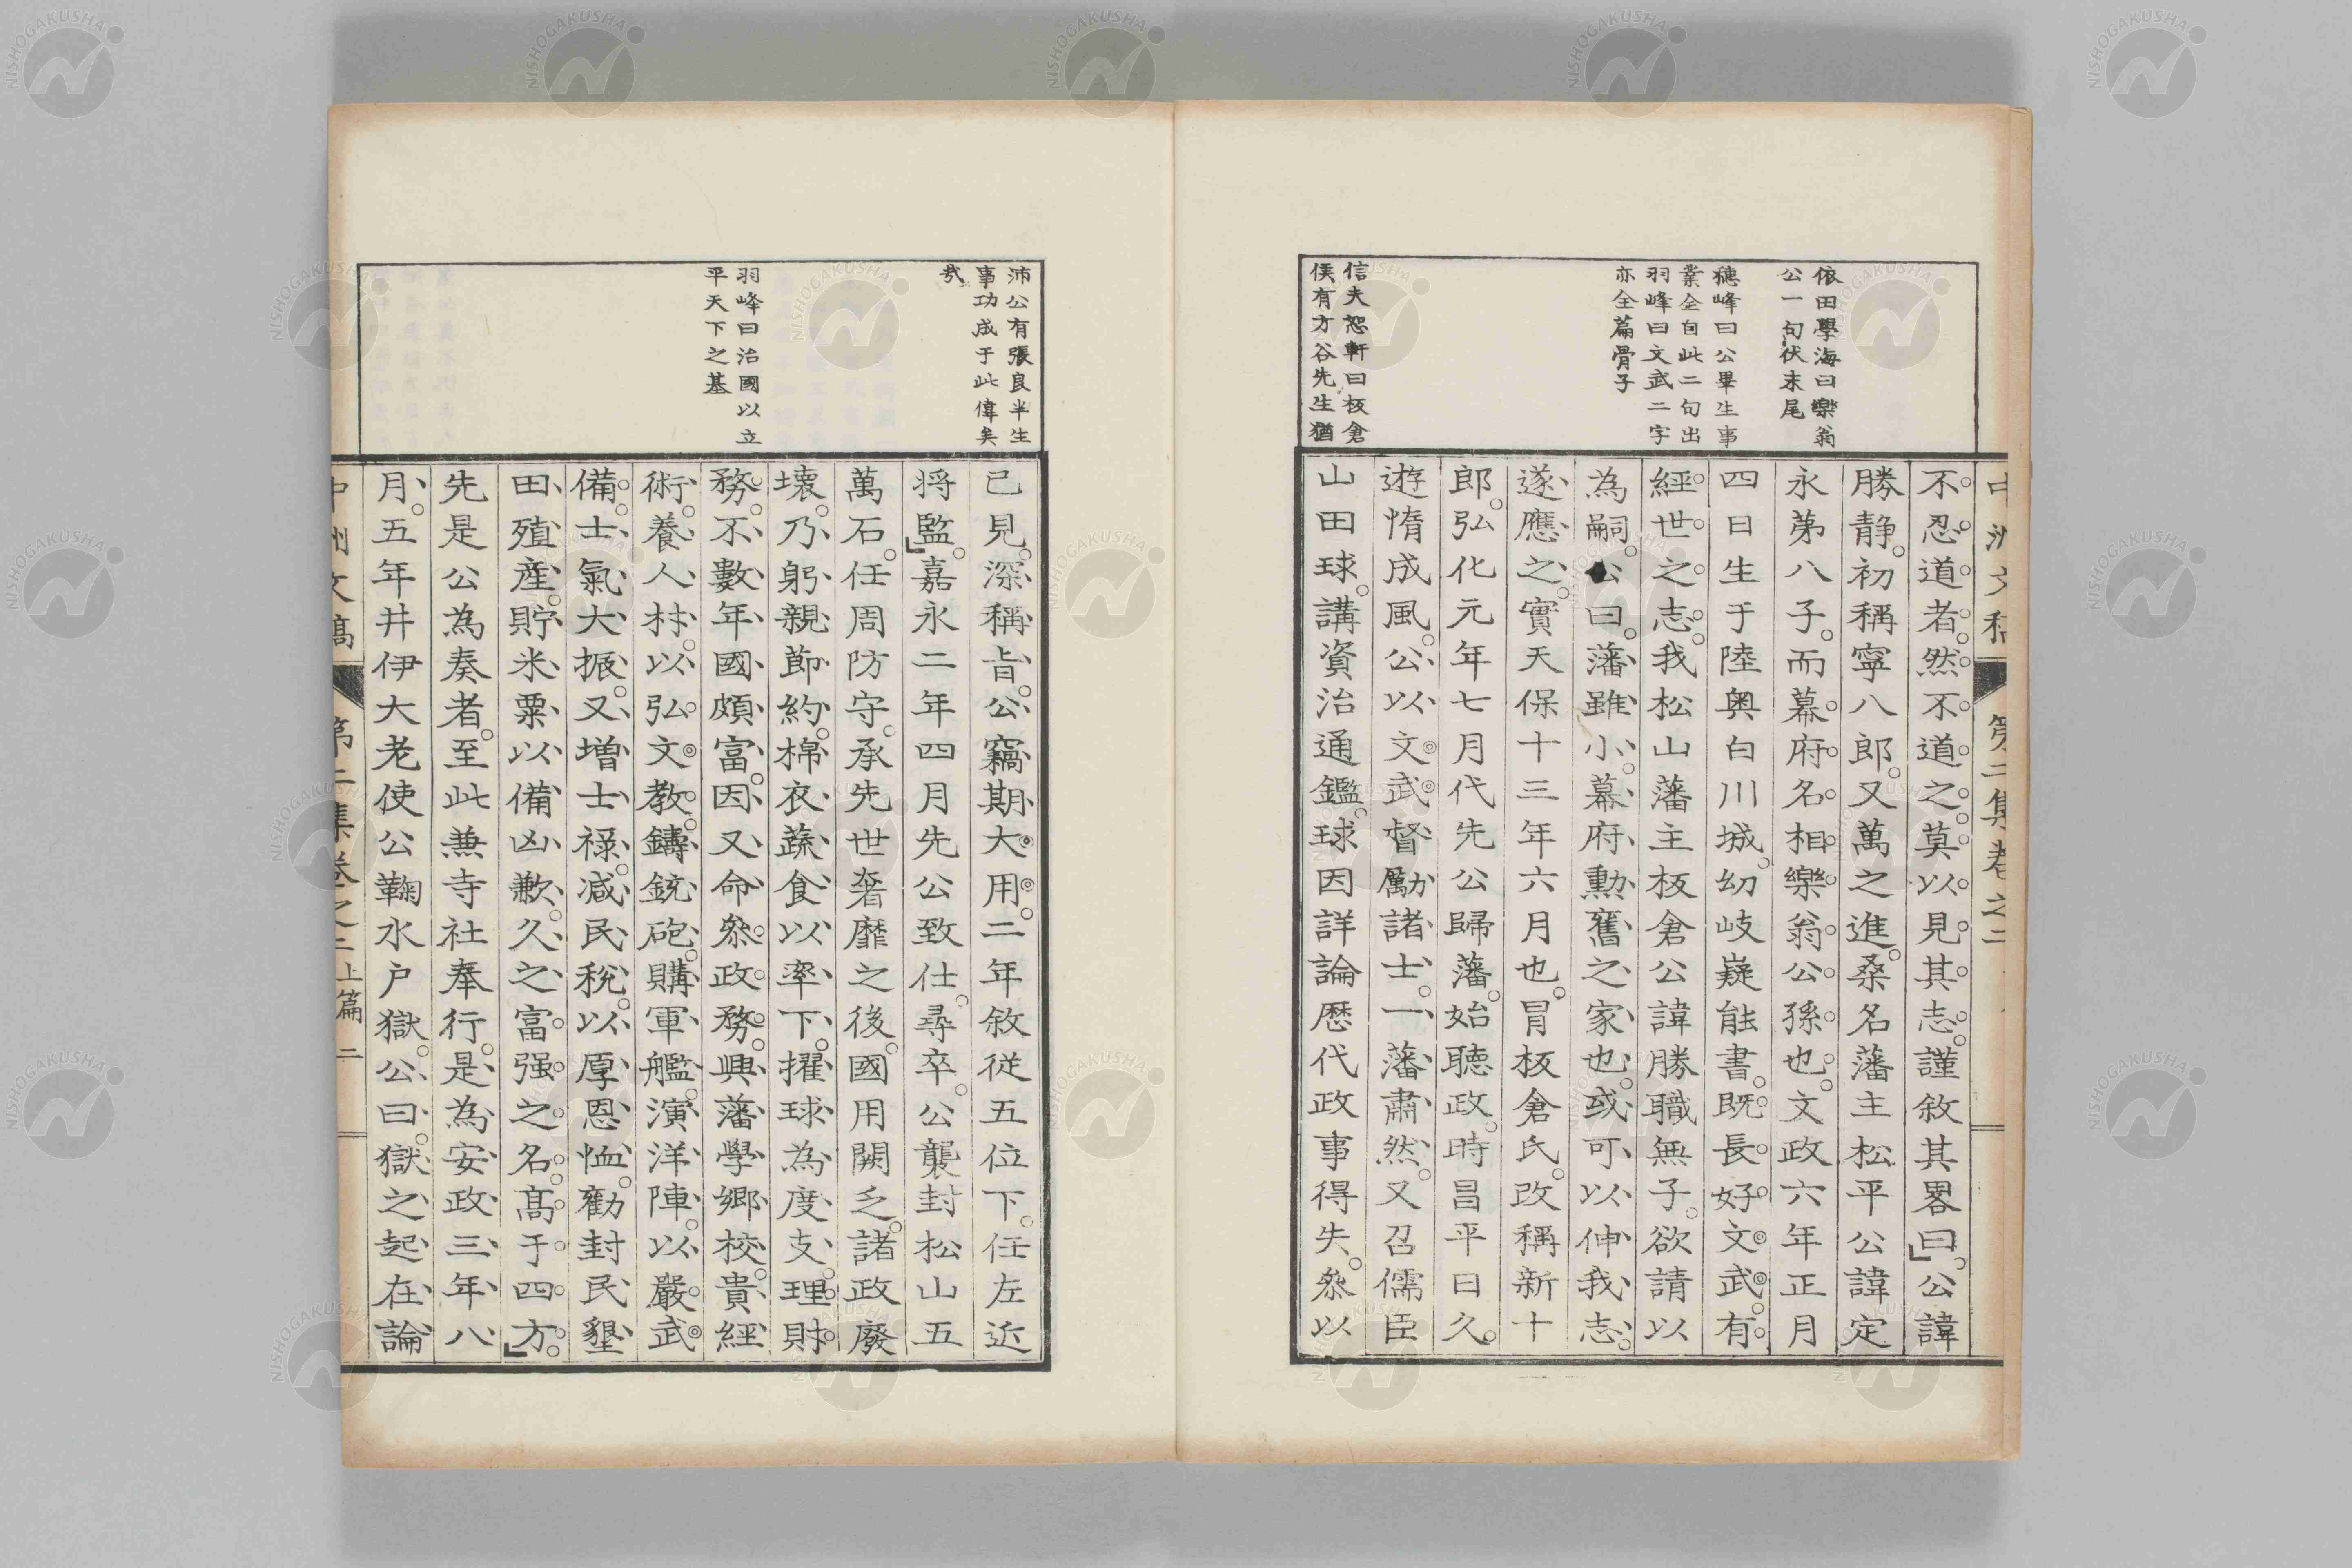 依田學海曰樂翁
公一句伏末尾
穗峰曰公畢生事
業全自此二句出
羽峰曰文武二字
亦全篇骨子
信夫恕軒曰板倉
侯有方谷先生猶
中洲文稿 第二集卷之二
不忍道者然不道之莫以見其志謹敘其畧曰公諱
勝静初稱寧八郎又萬之進桑名藩主松平公諱定
永第八子而幕府名相樂翁公孫也文政六年正月
四日生于陸奥白川城幼岐嶷能書既長好文武有
經世之志我松山藩主板倉公諱勝職無子欲請以
為嗣公曰藩雖小幕府勳舊之家也或可以伸我志
遂應之實天保十三年六月也冒板倉氏改稱新十
郎弘化元年七月代先公歸藩始聽政時昌平日久
遊惰成風公以文武督勵諸士一藩肅然又召儒臣
山田球講資治通鑑球因詳論歷代政事得失叅以
沛公有張良半生
事功成于此偉矣
哉
羽峰曰治國以立
平天下之基
己見深稱旨公竊期大用二年敘從五位下任左近
将監嘉永二年四月先公致仕尋卒公襲封松山五
萬石任周防守承先世奢靡之後國用闕乏諸政廢
壞乃躬親節約棉衣蔬食以率下擢球為度支理財
務不數年國頗富因又命叅政務興藩學鄉校貴經
術養人材以弘文教鑄銃砲購軍艦演洋陣以嚴武
備士氣大振又增士禄减民稅以厚恩恤勸封民墾
田殖産貯米粟以備凶歉久之富强之名高于四方
先是公為奏者至此兼寺社奉行是為安政三年八
月五年井伊大老使公鞠水户獄公曰獄之起在論
中洲文稿 第二集卷之二上篇 二
NISHOGAKUSHA